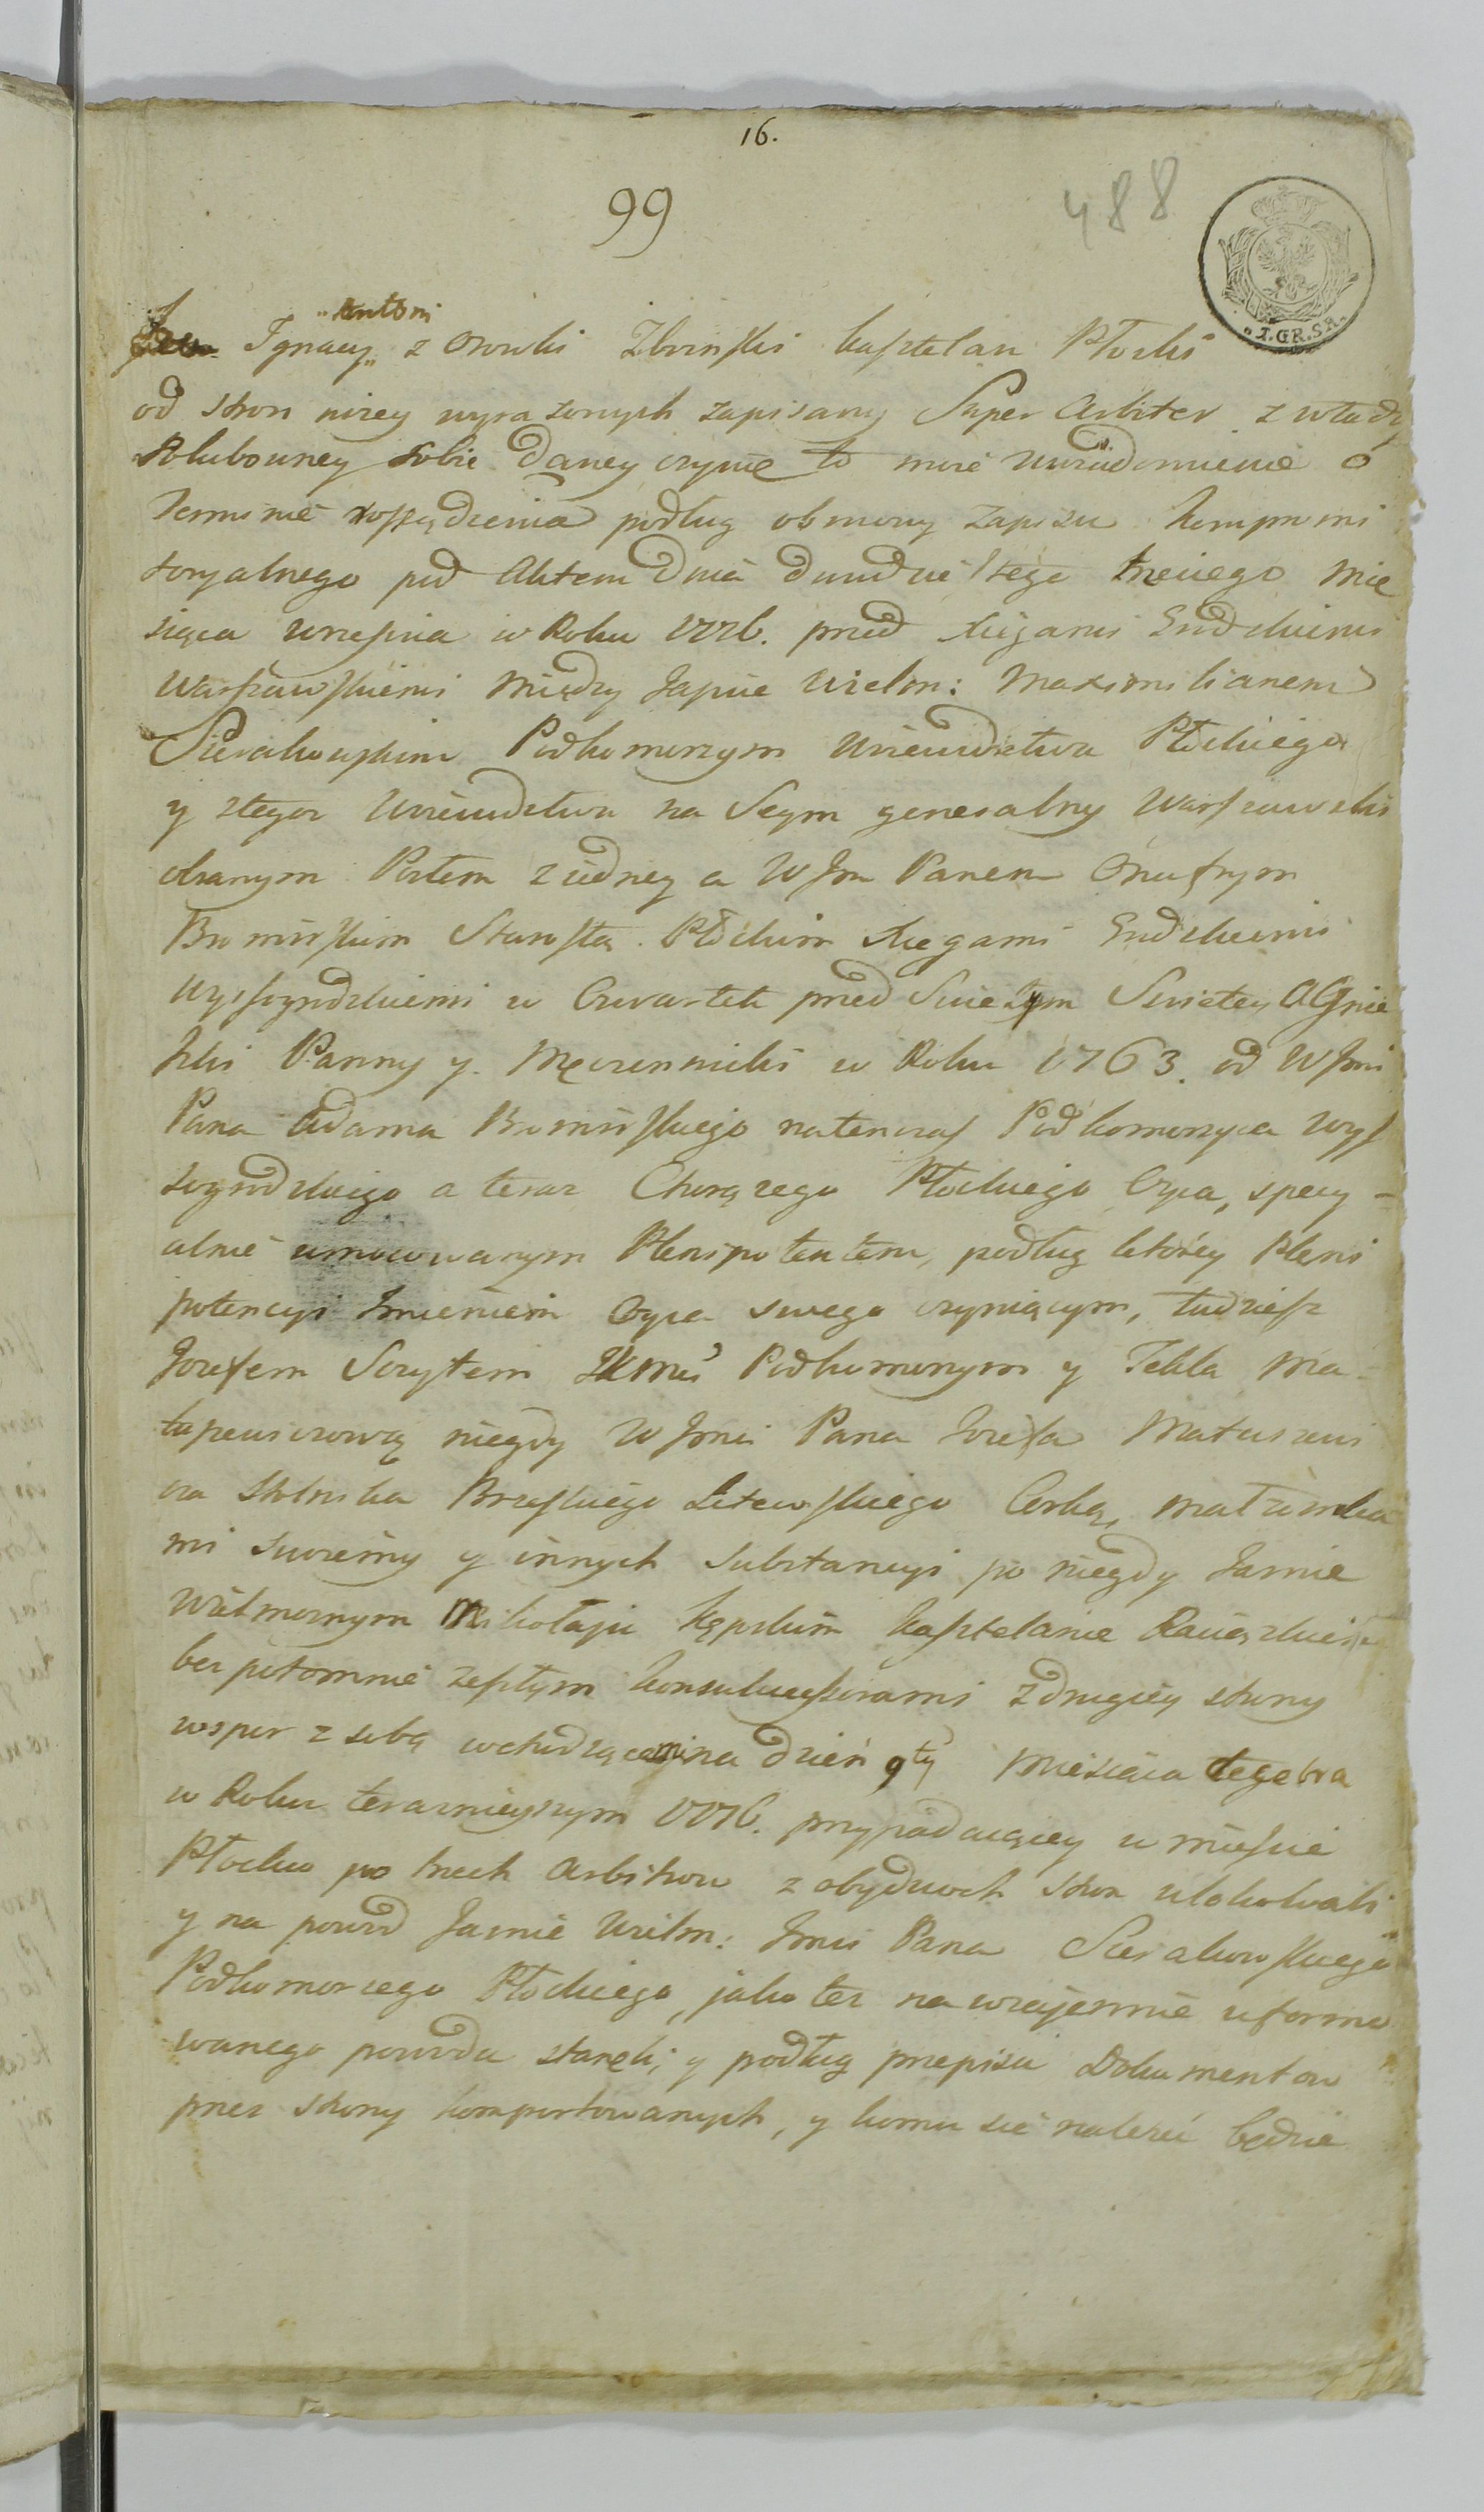 16.
99
488
"I.GR.SR."
"Antoni
Ignacy" z Osowki Zboinski kasztelan Płocki
od stron nizey wyrazonych zapisany Super Arbiter z władzy
Polubowney sobie daney czynię to moie uwiadomienie o
terminie rozsądzenia podług obmowy zapisu kompromi
soryalnego pod Aktem dnia dwudziestego trzeciego Mie
siąca wrzesnia w Roku 1776. przed xięgami Grodzkiemi
Warszawskiemi między Jaśnie Wielm: Maximilianem
Sierakowskim Podkomorzym Woiewodztwa Płockiego
y z tegoz Woiewodztwa na Seym generalny Warszawski
obranym Posłem z iedney a WJm Panem Onufrym
Bromirskim Starostą Płockim xięgami Grodzkiemi
Wyszogrodzkiemi w Czwartek przed Swiętym Swiętey Agnie
szki Panny y Męczenniki w Roku 1763. od WJmci
Pana Adama Bromirskiego natenczas Podkomorzyca Wysz
sogrodzkiego a teraz Chorązego Płockiego Oyca, specy-
alnie umocowanym Plenipotentem, podług ktorey Pleni
potencyi Imieniem Oyca swego czyniącym, tudziesz
Jozefem Scrytem JKMci Podkomorzym y Teklą Ma-
tuszewiczową niegdy WJmci Pana Jozefa Matuszewi
cza Stolnika Brzeskiego Litewskiego Corką, małzonka
mi swoiemy y innych Substancyi po niegdy Jasnie
Wielmoznym Mikołaju Kępskim kasztelanie Raciązkim
bezpotomnie zeszłym konsukcessorami z drugiey strony
w spor z sobą wchodzącemi na dzien 9ty Miesiąca
w Roku teraznieyszym 1776. przypadaiącey w miescie
Płocku po trzech Arbitrow z obydwoch stron ulokowali
y na powod Jasnie Wielm: Jmci Pana Sierakowskiego
Podkomorzego Płockiego, jako tez na wzajemnie uformo
wanego powoda stanęli, y podług przepisu Dokumentow
przez strony komportowanych, y komu się nalezeć będzie